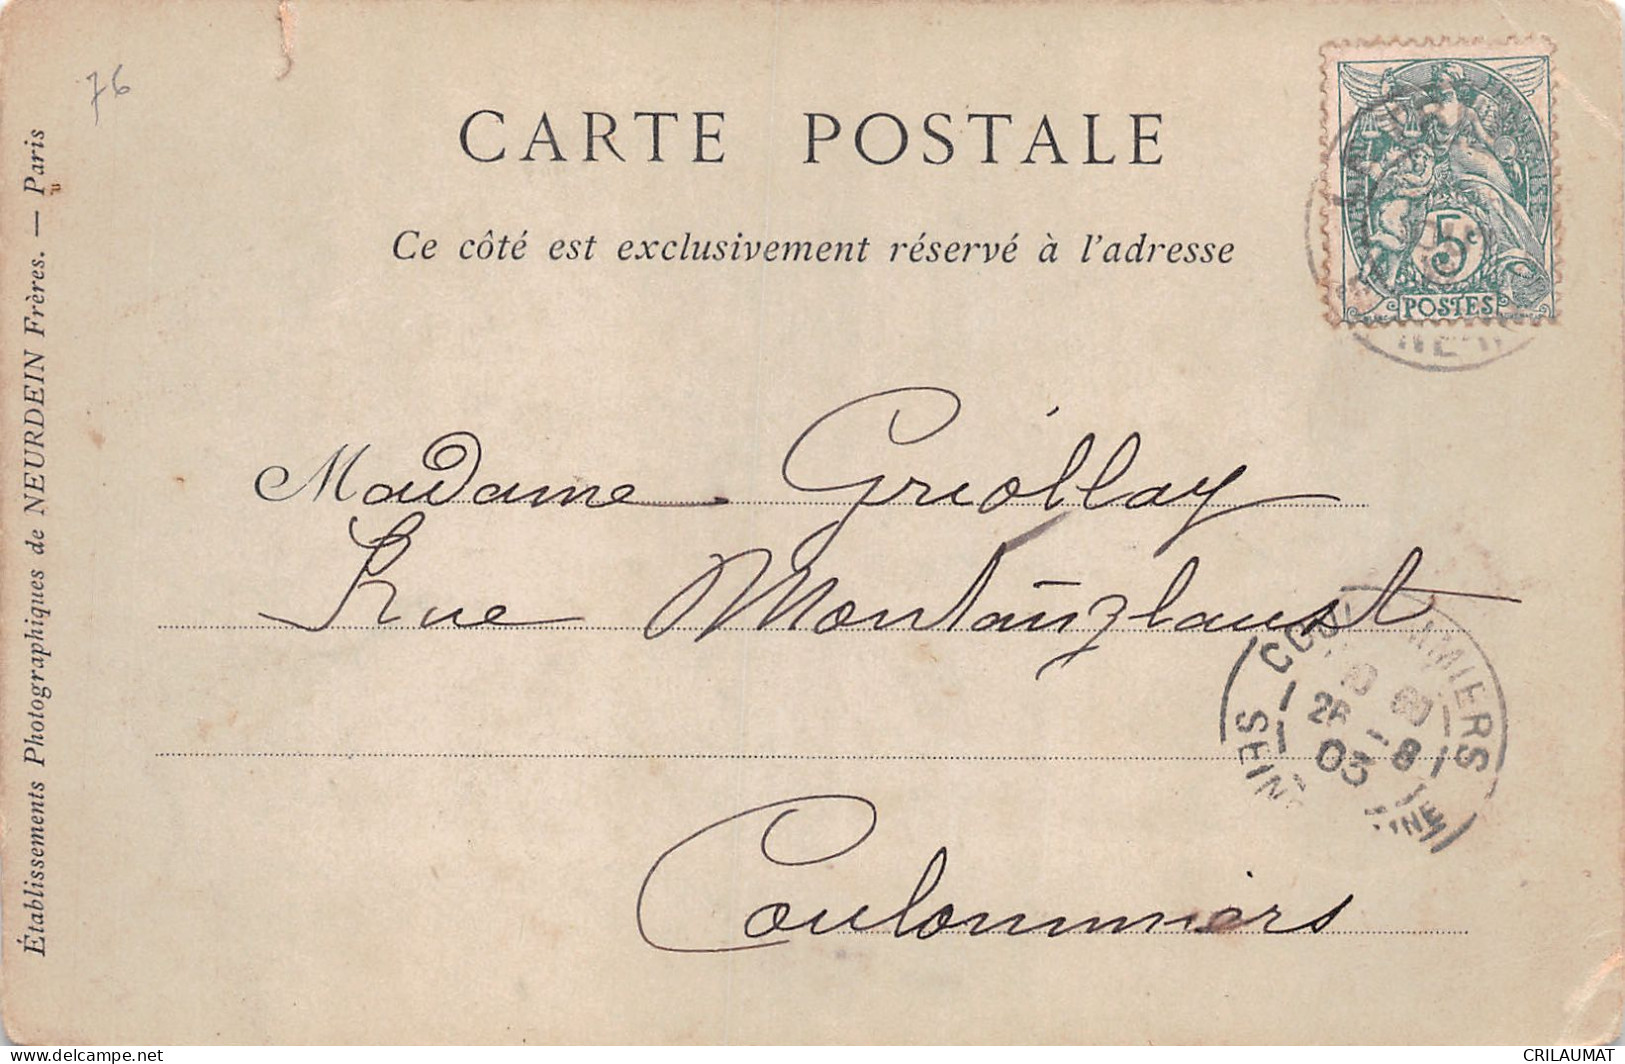 76
CARTE POSTALE
Ce côté est exclusivement réservé à l'adresse
Établissements Photographiques de NEURDEIN Frères. — Paris
5c
POSTES
Madame Griollay
Rue Montanglaust
Coulommiers
COU MMIERS
26 8
03
SEINE
delcampe.net
CRILAUMAT